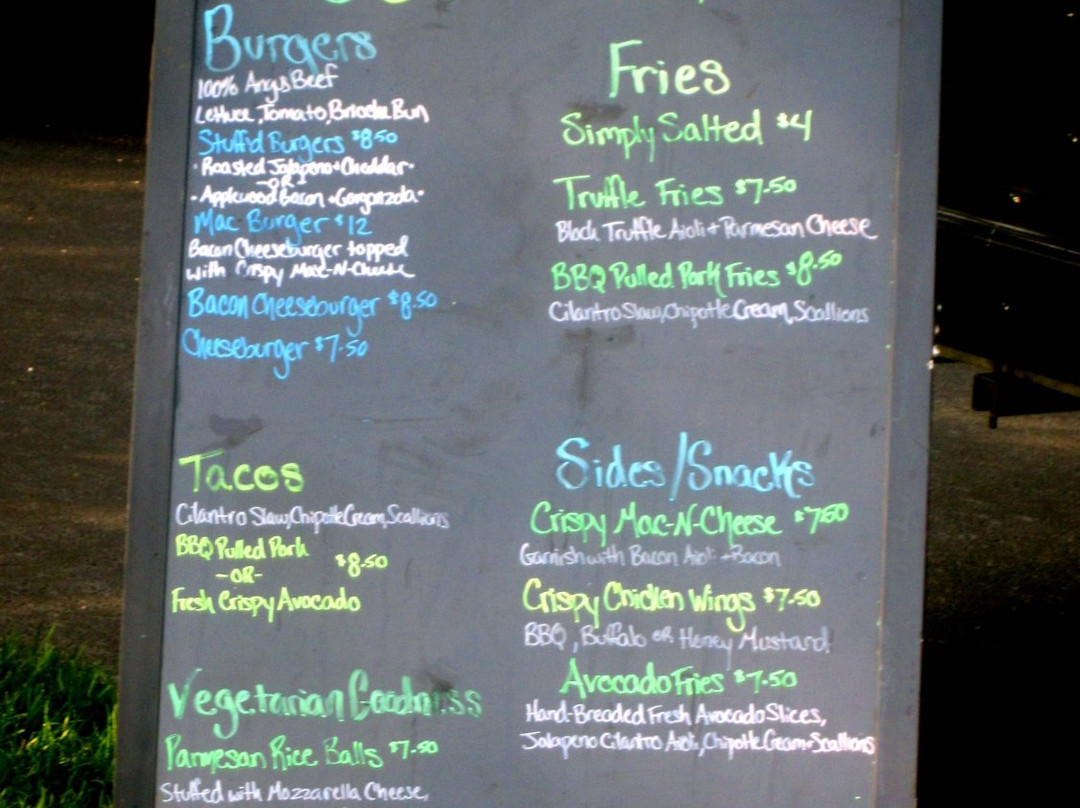 Burgers
100% Angs Beef
Lettuce, Tomato, Brioche Bun
Stuff'd Burgers $8.50
· Roasted Jalapeno + Cheddar ·
-OR-
· Applewood Bacon + Gorgonzola ·
Mac Burger $12
Bacon Cheeseburger topped
with Crispy Mac-N-Cheese
Bacon Cheeseburger $8.50
Cheeseburger $7.50
Tacos
Cilantro Slaw, Chipotle Cream, Scallions
BBQ Pulled Pork
$8.50
-OR-
Fresh Crispy Avocado
Vegetarian Goodness
Parmesan Rice Balls $7.50
Stuffed with Mozzarella Cheese,
Fries
Simply Salted $4
Truffle Fries $7.50
Black Truffle Aioli + Parmesan Cheese
BBQ Pulled Pork Fries $8.50
Cilantro Slaw, Chipotle Cream, Scallions
Sides/Snacks
Crispy Mac-N-Cheese $7.50
Garnish with Bacon Aioli + Bacon
Crispy Chicken Wings $7.50
BBQ, Buffalo OR Honey Mustard
Avocado Fries $7.50
Hand-Breaded Fresh Avocado Slices,
Jalapeno Cilantro Aioli, Chipotle Cream + Scallions